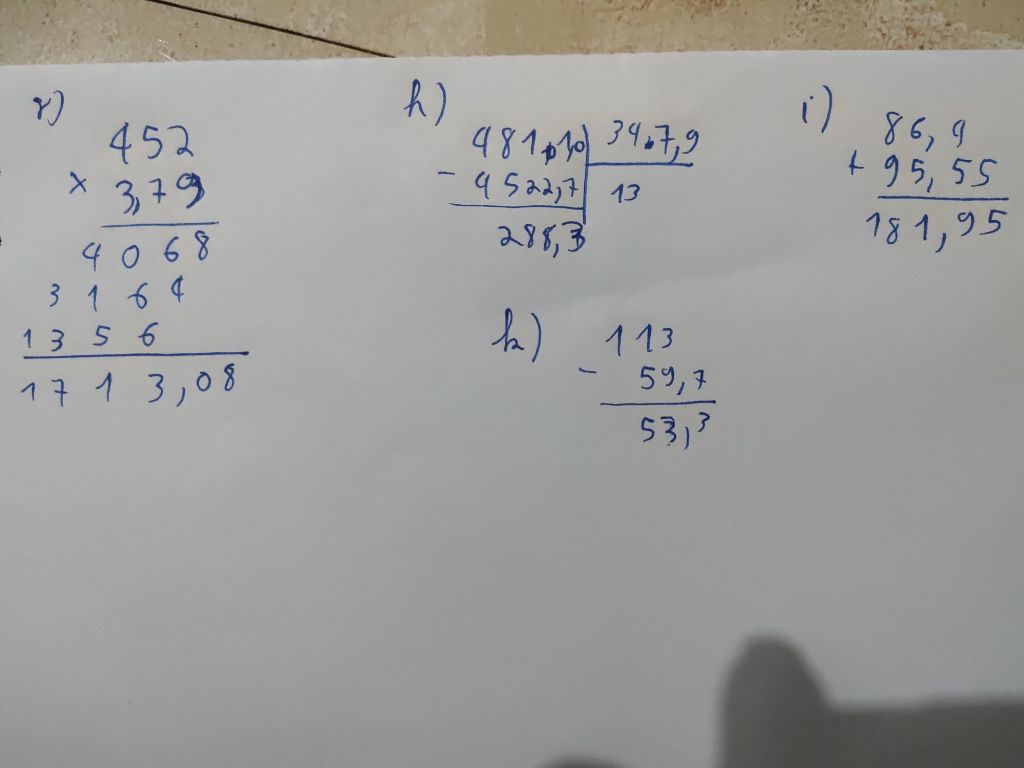 r)
452
× 3,79
4 0 6 8
3 1 6 4
1 3 5 6
1 7 1 3,08
h)
481,1,0 34,7,9
- 4522,7 13
288,3
i)
86,4
+ 95,55
181,95
k)
113
- 59,7
53,3